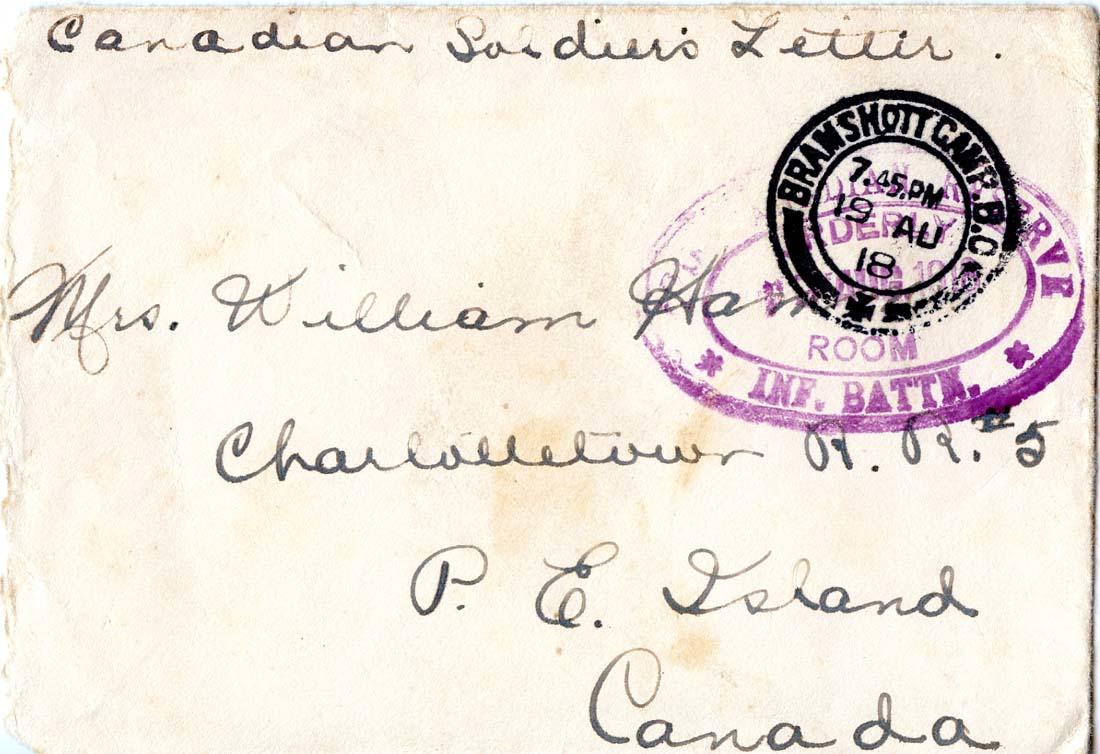 Canadian Soldier's Letter.
BRAMSHOTT CAMP. B.O.
7.45.PM
19 AU
18
RESERVE
ROOM
INF. BATTN.
Mrs. William
Charlottetown R. R. #5
P. E. Island
Canada